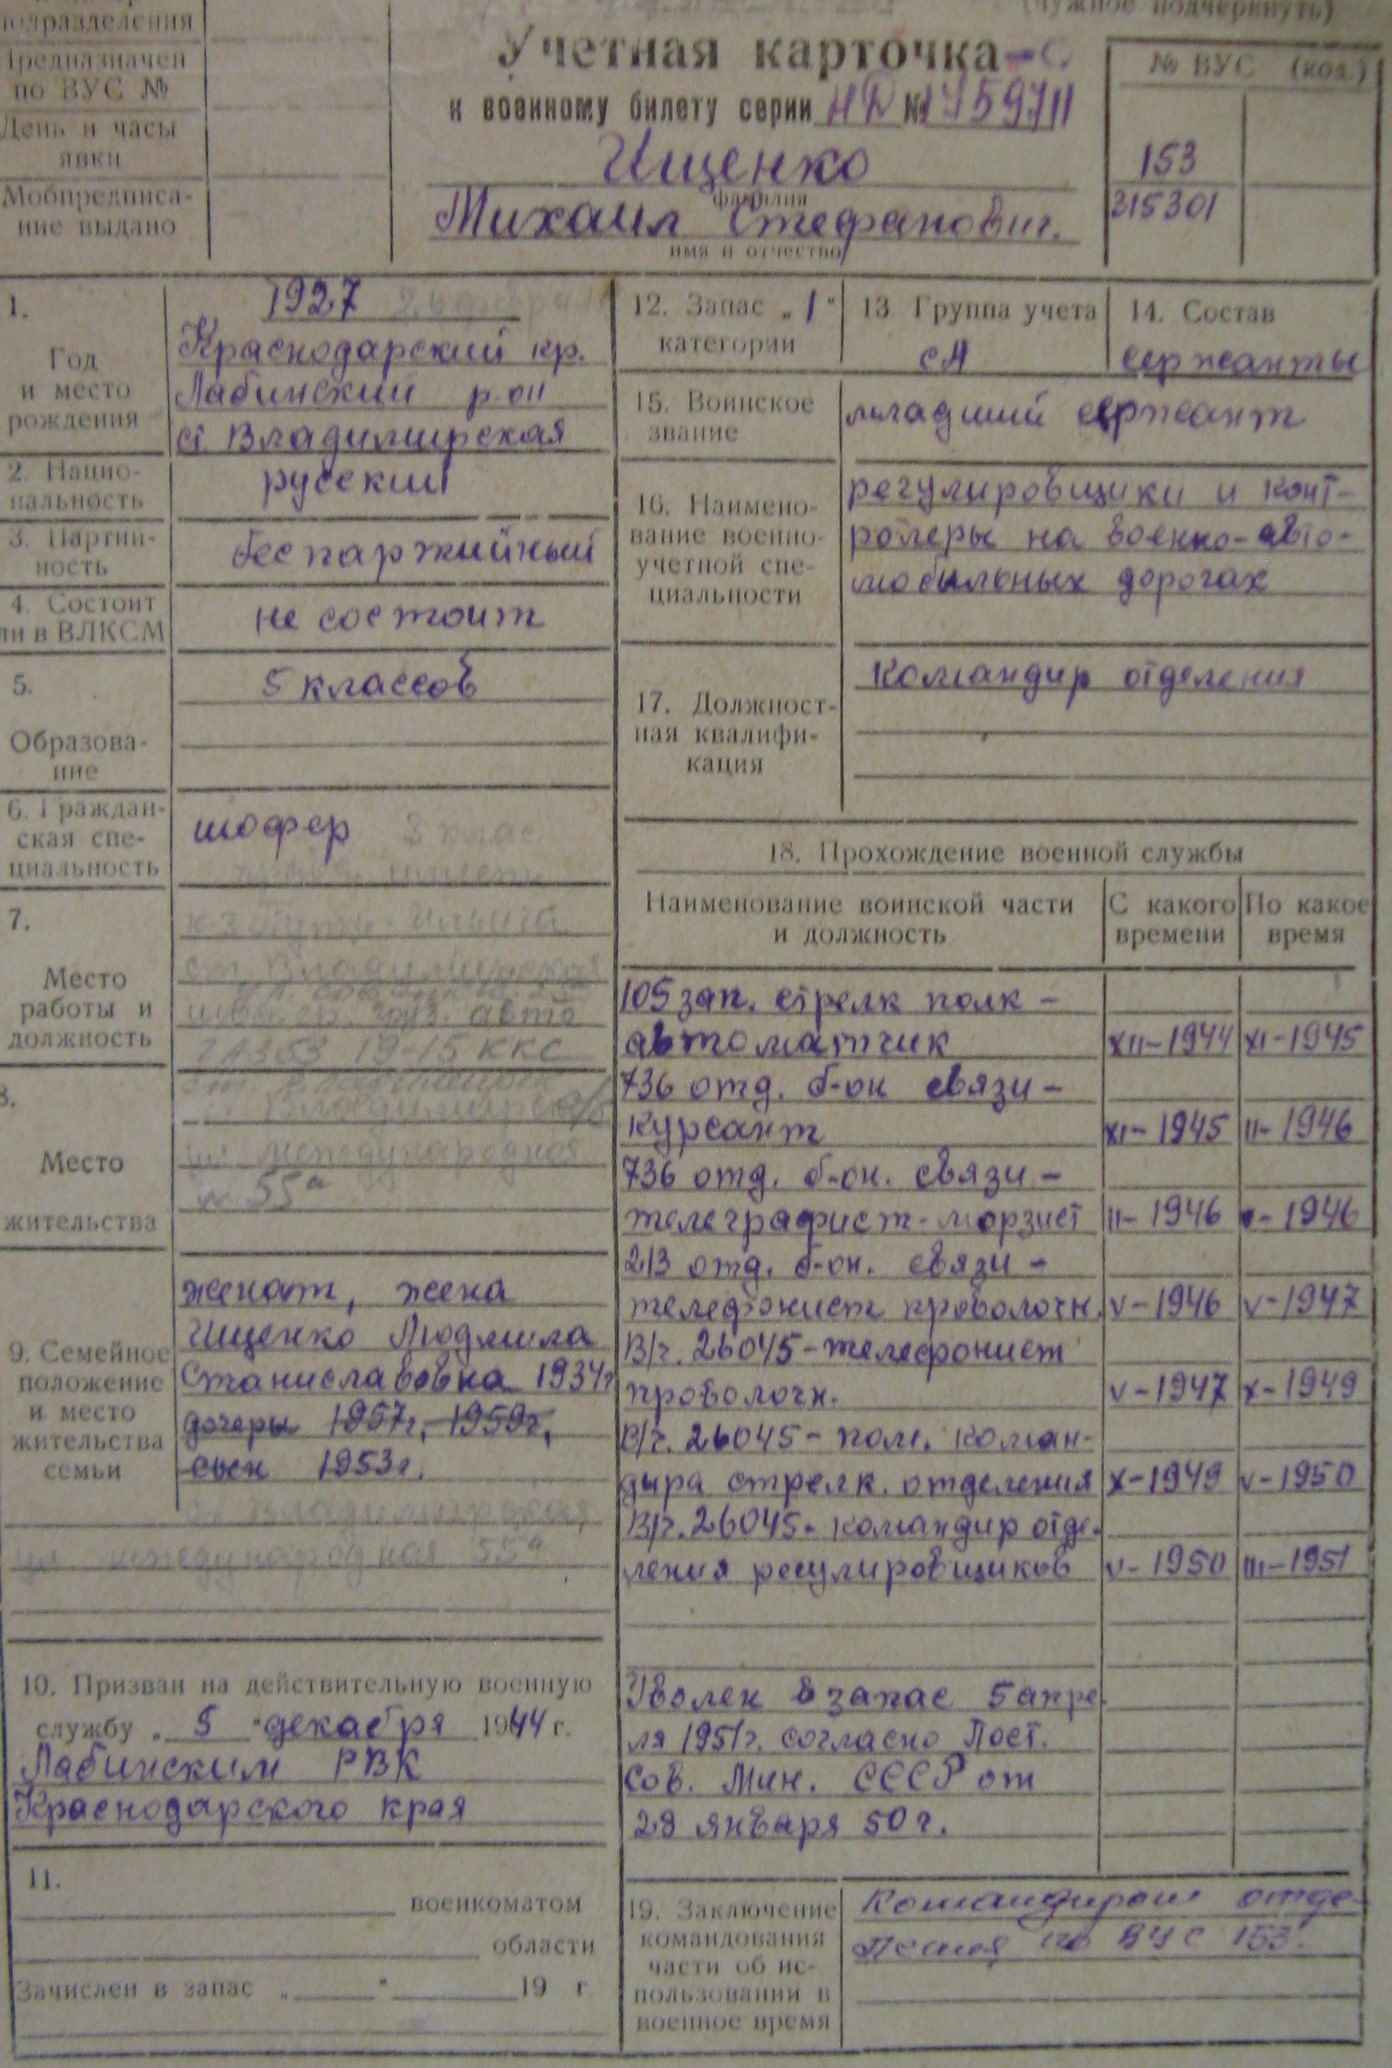 (нужное подчеркнуть)
подразделения
Предназначен
по ВУС №
День и часы
явки
Мобпредписа-
ние выдано
Учетная карточка
к военному билету серии НД №
Ищенко
фамилия
Михаил Стефанович.
имя и отчество
№ ВУС (код.)
153
315301
1.
Год
и место
рождения
1927
Краснодарский кр.
Лабинский р-он
ст. Владимирская
2. Нацио-
нальность
русский
3. Партий-
ность
беспартийный
4. Состоит
ли в ВЛКСМ
не состоит
5.
Образова-
ние
5 классов
6. Граждан-
ская спе-
циальность
шофер 3 клас.
7.
Место
работы и
должность
к-з
Ильича
ст. Владимирская
авто
ГАЗ 53 19-15 ККС
8.
Место
жительства
ст. Владимирская
ул. Международная
55а
9. Семейное
положение
и место
жительства
семьи
женат, жена
Ищенко Людмила
Станиславовна 1934г
дочери 1957г, 1959г,
сын 1953г.
ст. Владимирская,
ул. международная 55а
10. Призван на действительную военную
службу „5" декабря 1944 г.
Лабинским РВК
Краснодарского края
11.
военкоматом
области
Зачислен в запас „ " 19 г
12. Запас „1"
категории
13. Группа учета
СА
14. Состав
сержанты
15. Воинское
звание
младший сержант
16. Наимено-
вание военно-
учетной спе-
циальности
регулировщики и конт-
ролеры на военно-авто-
мобильных дорогах
17. Должност-
ная квалифи-
кация
Командир отделения
18. Прохождение военной службы
Наименование воинской части
и должность
С какого
времени
По какое
время
105 зап. стрелк полк -
автоматчик XII-1944 XI-1945
736 отд. б-он связи -
курсант XI-1945 II-1946
736 отд. б-он. связи -
телеграфист-морзист II-1946 V-1946
213 отд. б-он. связи -
телефонист проволочн. V-1946 V-1947
В/ч. 26045 - телефонист
проволочн. V-1947 X-1949
В/ч. 26045 - пом. коман-
дира стрелк. отделения X-1949 V-1950
В/ч. 26045 - командир отде-
ления регулировщиков V-1950 III-1951
Уволен в запас 5 апре
ля 1951г. согласно Пост.
Сов. Мин. СССР от
29 января 50 г.
19. Заключение
командования
части об ис-
пользовании в
военное время
Командиром отде-
ления по ВУС 153.